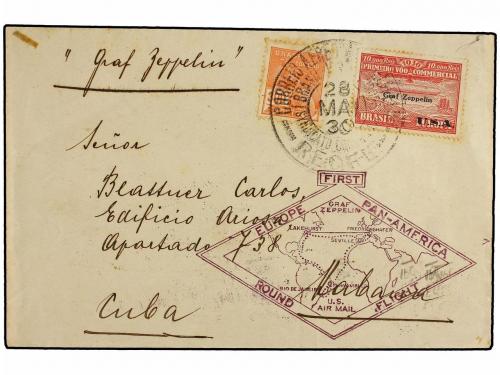 "Graf Zeppelin"
BRASIL
10.000 Reis 10.000 Reis
PRIMEIRO VOO COMMERCIAL
Graf Zeppelin
U.S.A.
BRASIL
CORREIO AEREO
28
MAI
30
RECIFE
Señor
Blattner Carlos,
Edificio Ariosa
Apartado 738
Habana
Cuba
FIRST
EUROPE PAN-AMERICA
GRAF
ZEPPELIN
LAKEHURST FRIEDRICHSHAFEN
SEVILLE
RIO DE JANEIRO
U.S.
AIR MAIL
ROUND FLIGHT